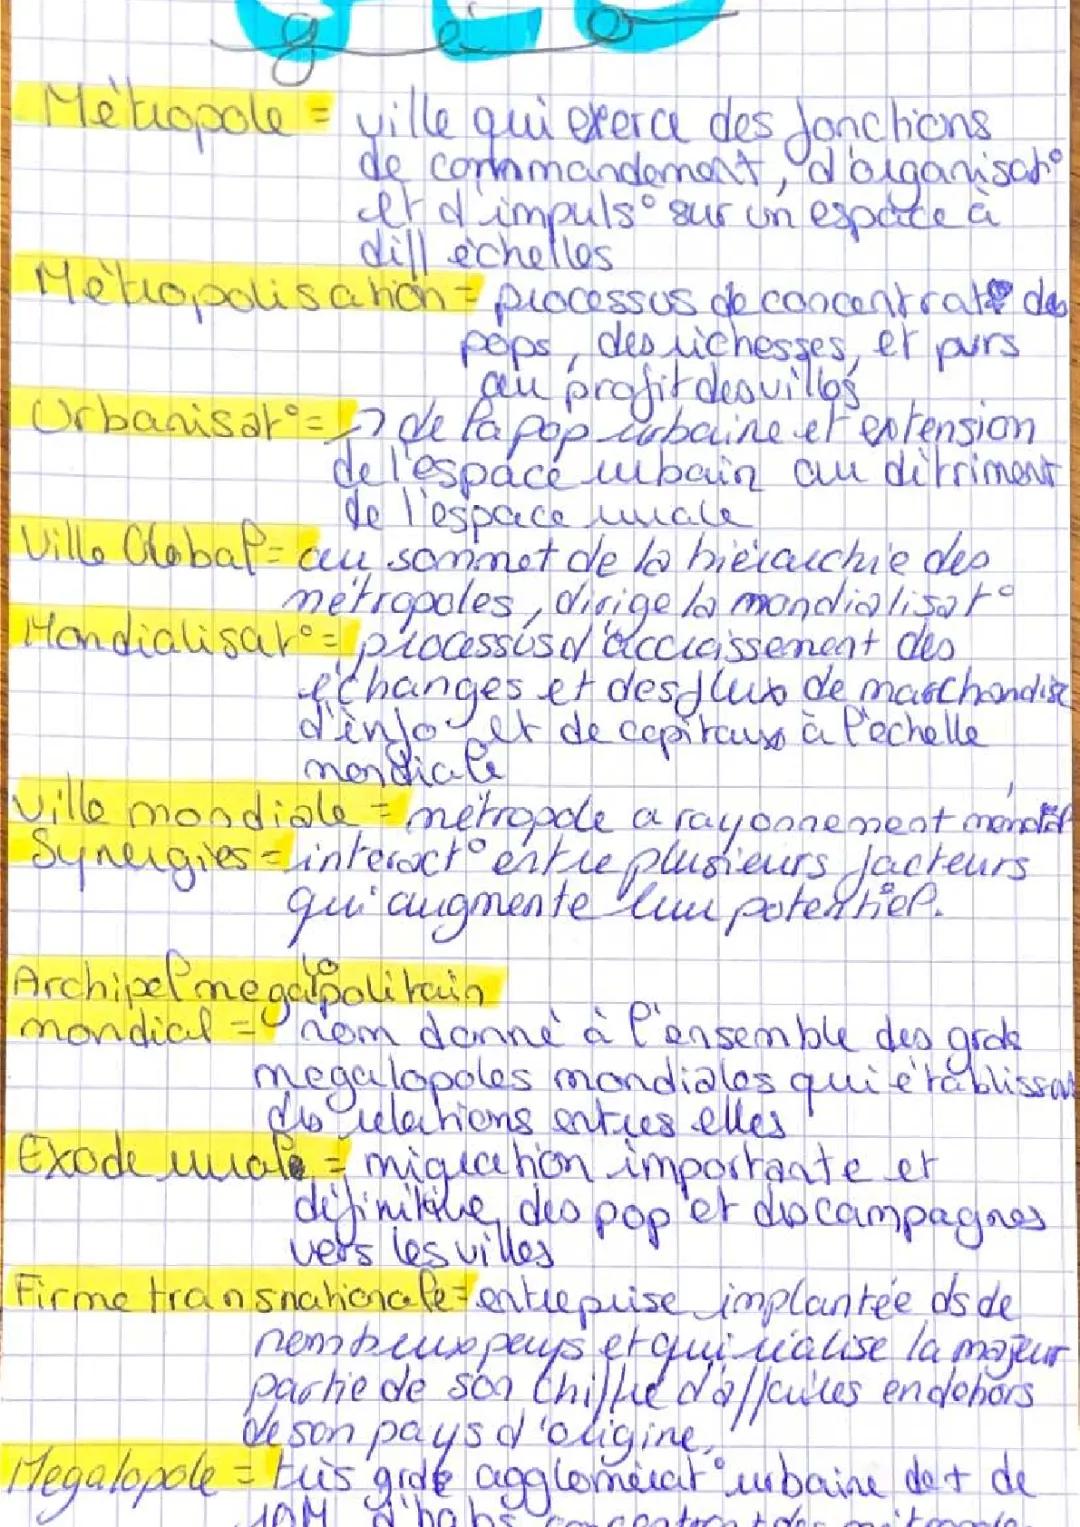 géo
Métropole = ville qui exerce des fonctions
de commmandement, d'organisat°
et d'impuls° sur un espace à
diff échelles
Métropolisation = processus de concentrat° des
pops, des richesses, et pvrs
au profit des villes
Urbanisat° = ↗ de la pop urbaine et extension
de l'espace urbain au détriment
de l'espace rurale
Ville Global = au sommet de la hiérarchie des
métropoles, dirige la mondialisat°
Mondialisat° = processus d'accraissement des
échanges et des flux de marchandise
d'info et de capitaux à l'echelle
mondiale
Ville mondiale = métropole a rayonnement mondial
Synergies = interact° entre plusieurs facteurs
qui augmente leur potentiel.
Archipel megalopolitain
mondial = nom donné à l'ensemble des grde
megalopoles mondiales qui établissent
des relations entres elles
Exode rurale = migration importante et
définitive des pop et des campagnes
vers les villes
Firme transnationale = entreprise implantée ds de
nombeux pays et qui réalise la majeur
partie de son chiffre d'affaires en dehors
de son pays d'origine.
Megalopole = très grde agglomérat° urbaine de + de
10M d'habs